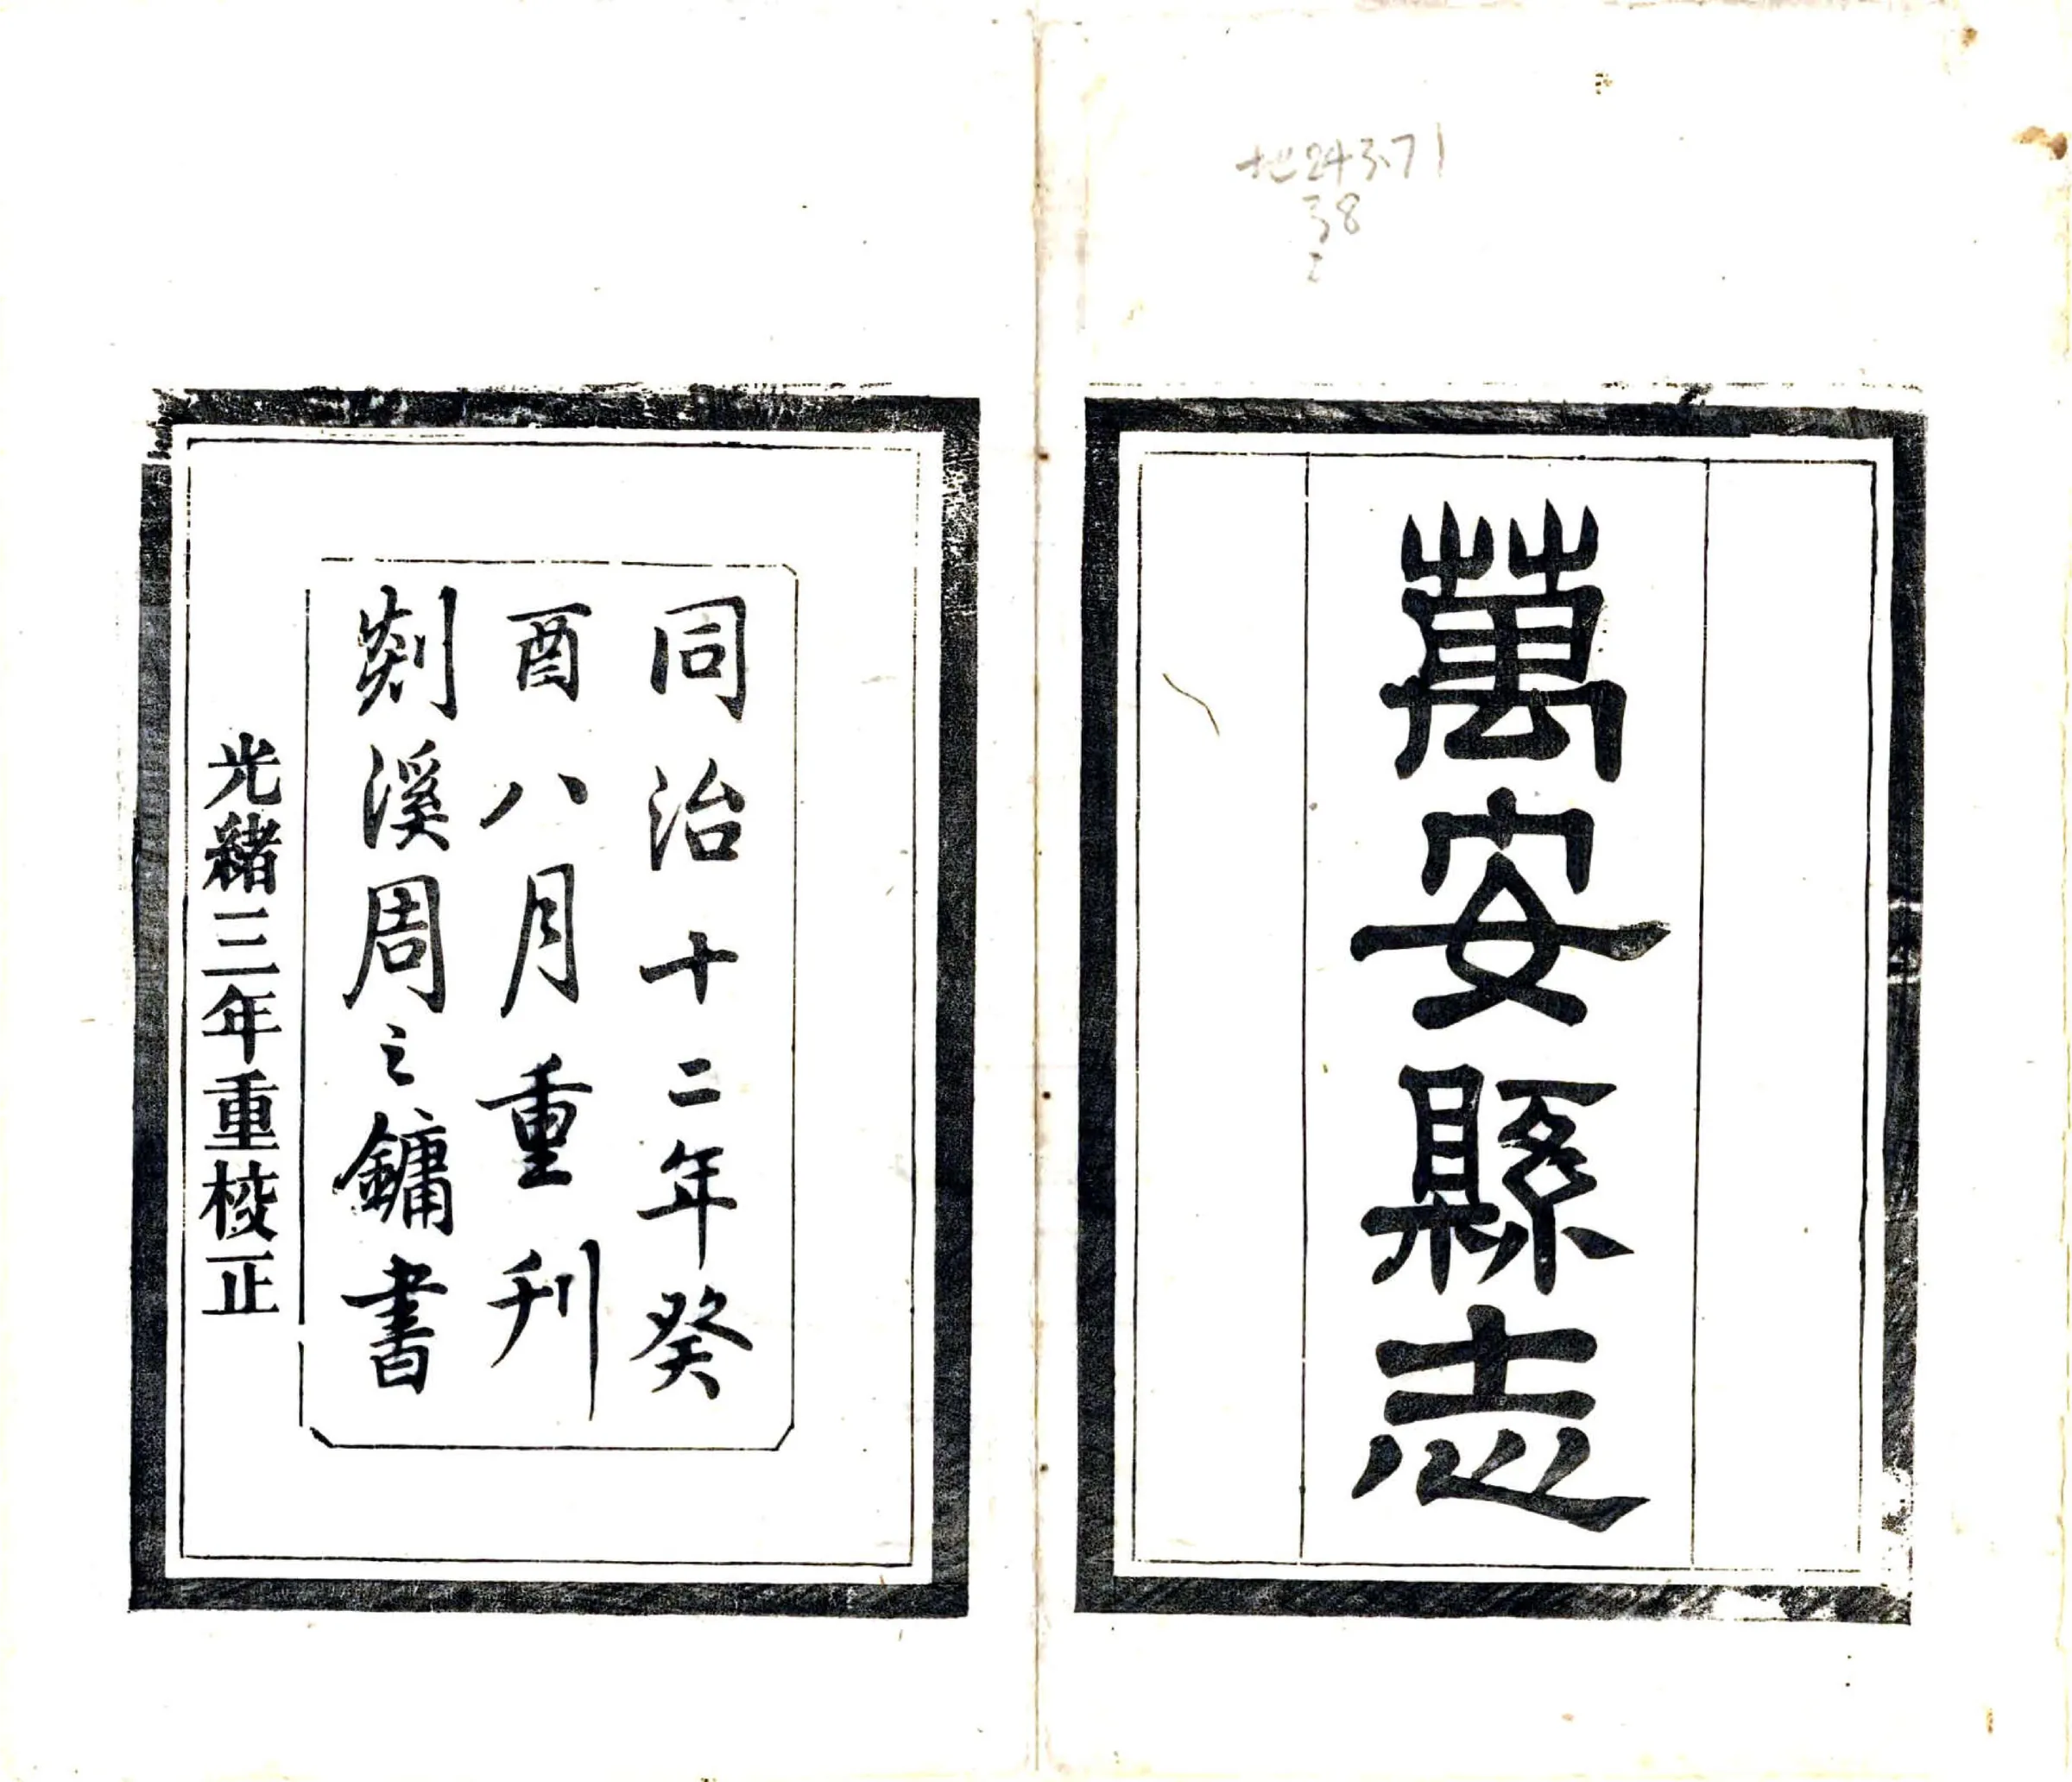 地243.71
38
萬安縣志
同治十二年癸
酉八月重刊
剡溪周之鏞書
光緒三年重校正